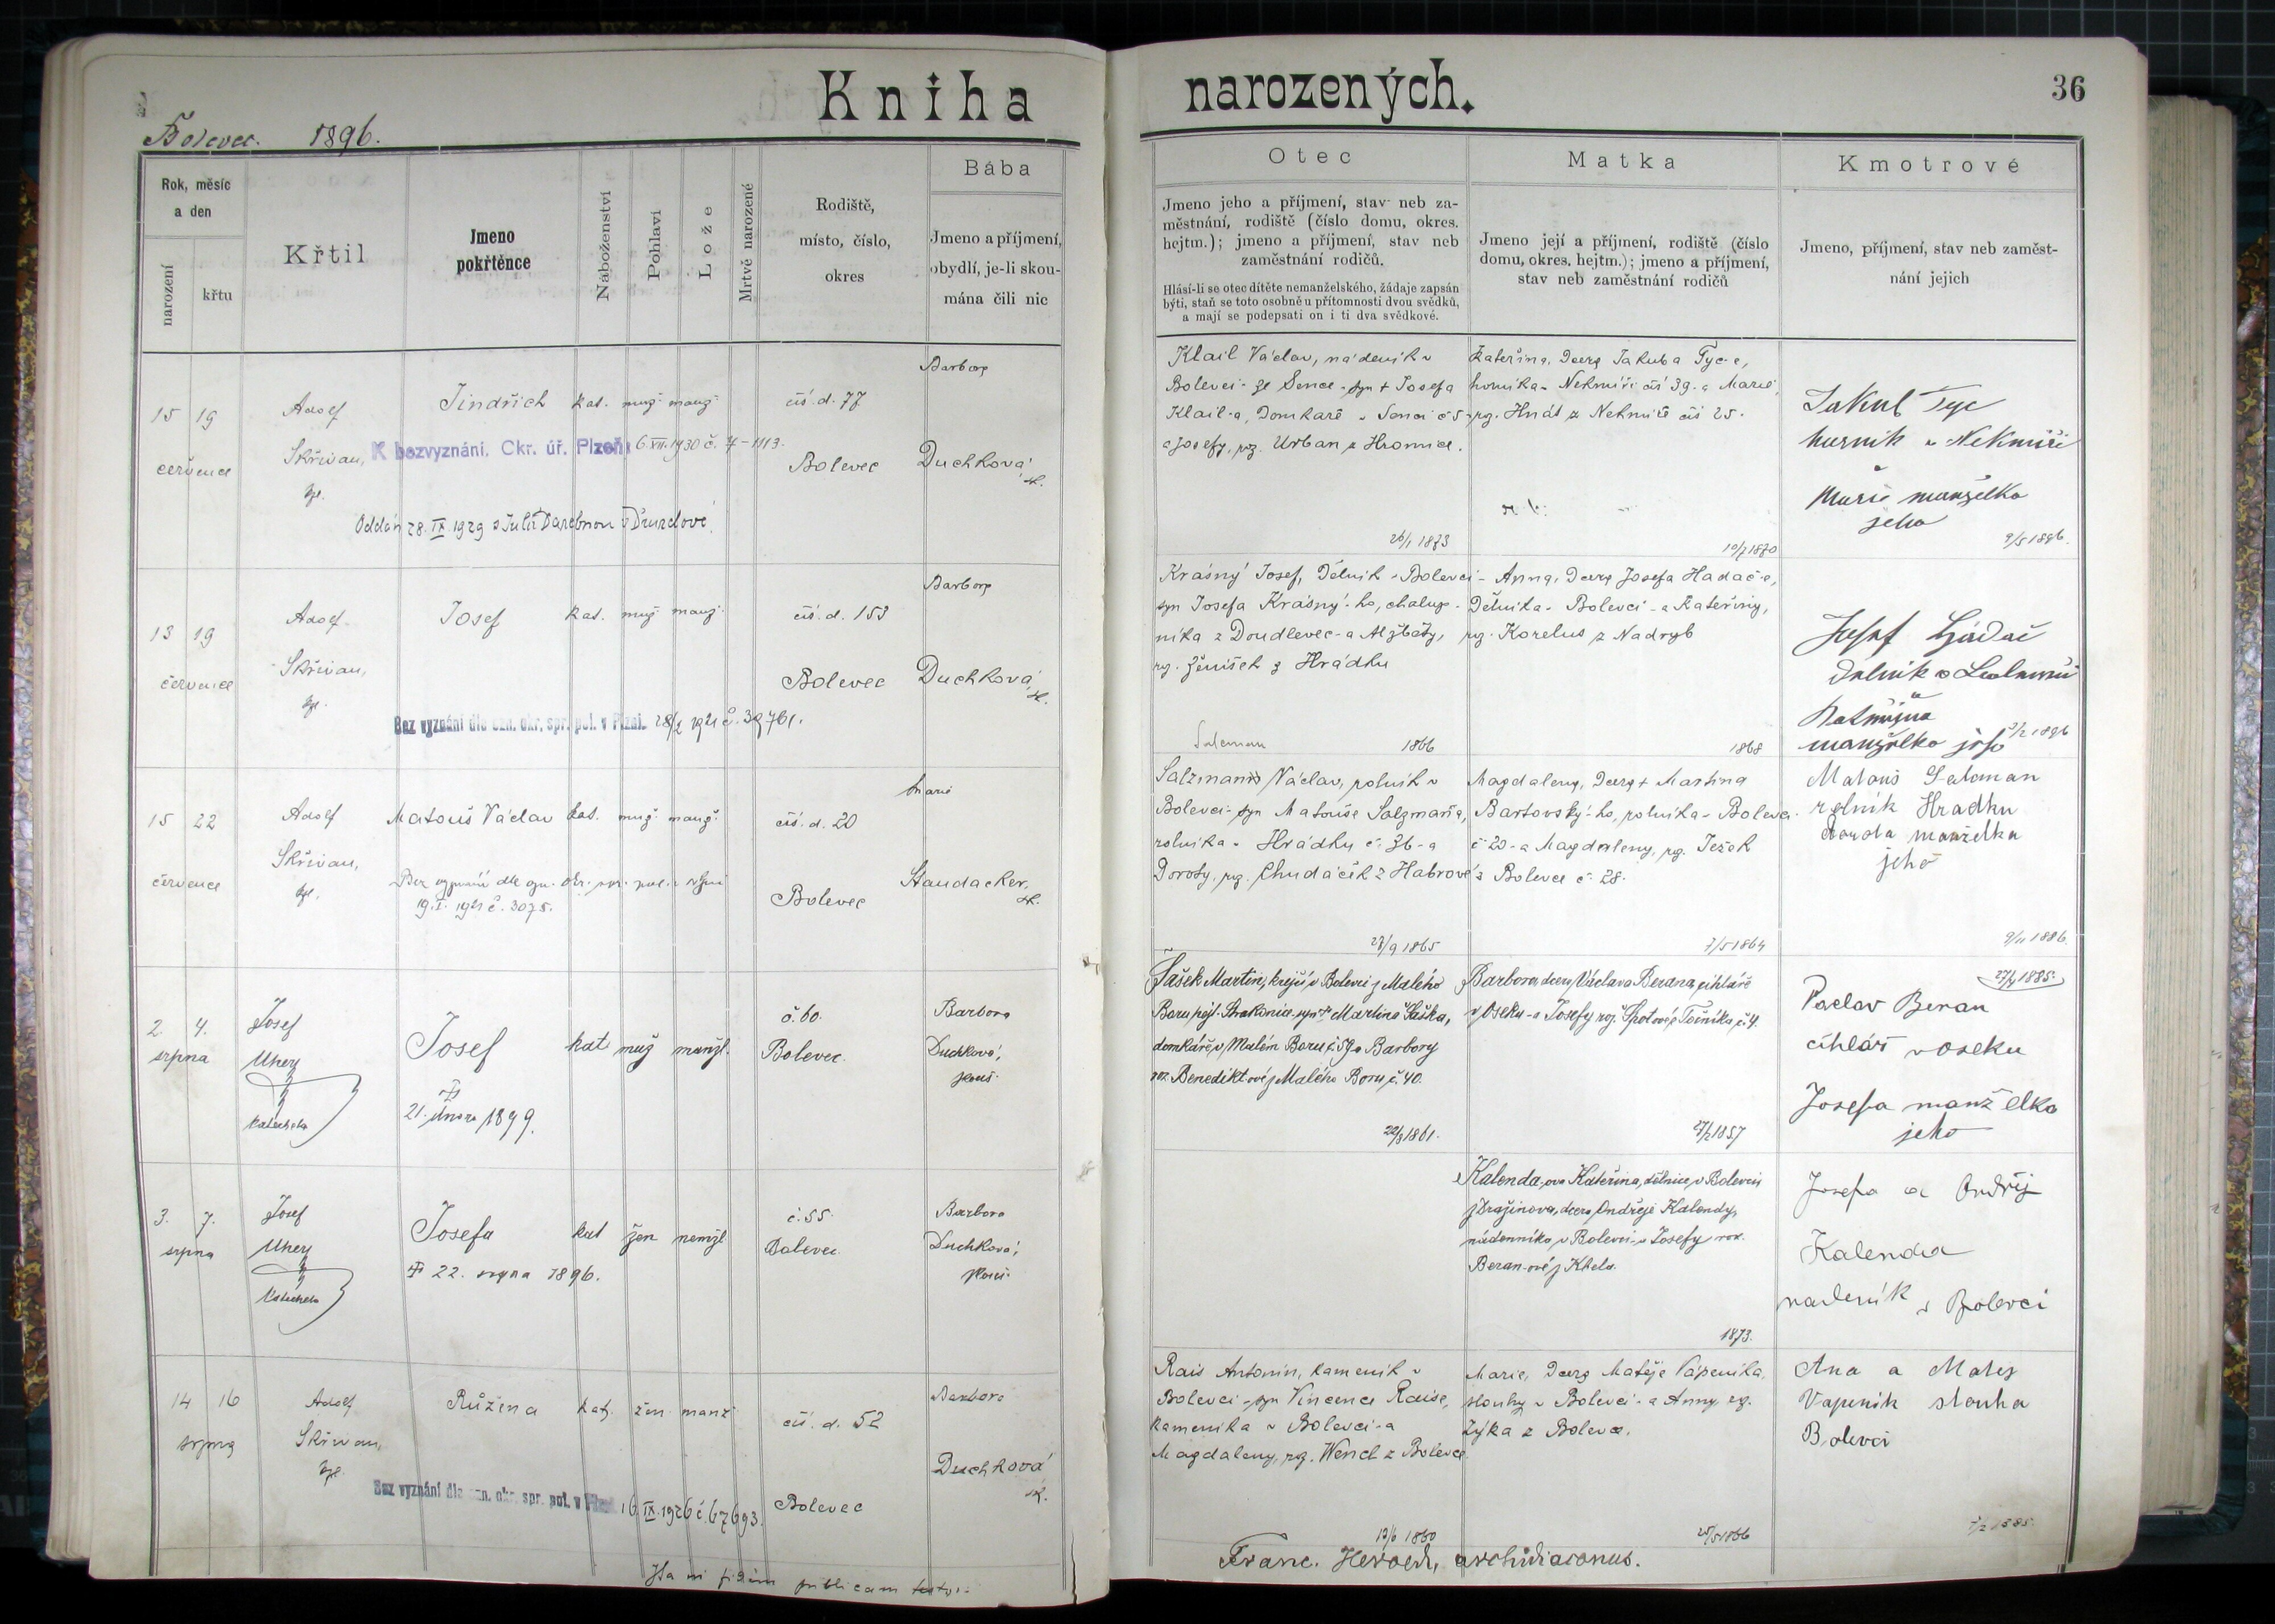 Kniha narozených.
36
Bolevec. 1896.
Rok, měsíc
a den
narození
křtu
Křtil
Jmeno
pokřtěnce
Náboženství
Pohlaví
Lože
Mrtvě narozené
Rodiště,
místo, číslo,
okres
Bába
Jmeno a příjmení,
obydlí, je-li skou-
mána čili nic
Otec
Jmeno jeho a příjmení, stav neb za-
městnání, rodiště (číslo domu, okres.
hejtm.); jmeno a příjmení, stav neb
zaměstnání rodičů.
Hlásí-li se otec dítěte nemanželského, žádaje zapsán
býti, staň se toto osobně u přítomnosti dvou svědků,
a mají se podepsati on i ti dva svědkové.
Matka
Jmeno její a příjmení, rodiště (číslo
domu, okres. hejtm.); jmeno a příjmení,
stav neb zaměstnání rodičů
Kmotrové
Jmeno, příjmení, stav neb zaměst-
nání jejich
15 19
července
Adolf
Skřivan,
Jindřich
kat. muž. manž.
K bezvyznání. Ckr. úř. Plzeň 6.XII.1930 č. 
Oddán 28.IX.1929 s Julií 
čís. d. 77
Bolevec
Barbora
Duchková,
Klail Václav, nádeník v
Bolevci - ze Sence - syn † Josefa
Klail-a, domkáře v Senci č 5 -
a Josefy, roz. Urban z Hromice.
26/1 1873
Kateřina, dcera Jakuba Tyc-e,
horníka v Nekmíři čís 39 - a Marie,
roz. Hnát z Nekmíře čís 25.
10/7 1870
Jakub Tyc
horník v Nekmíři
Marie manželka
jeho
9/5 1896.
13 19
července
Adolf
Skřivan,
Josef
kat. muž. manž.
Bez vyznání dle ozn. okr. spr. pol. v Plzni. 28/2 1921 č. 39761.
čís. d. 153
Bolevec
Barbora
Duchková,
Krásný Josef, dělník v Bolevci -
syn Josefa Krásný-ho, chalup-
níka z Doudlevec - a Alžběty,
roz. Ženíšek z Hrádku
1866
Anna, dcera Josefa Hadač-e,
dělníka v Bolevci - a Kateřiny,
roz. Korelus z Nadryb
1868
Josef Hadač
dělník v
Kateřina
manželka jeho
2/2 1896
15 22
července
Adolf
Skřivan,
Matouš Václav
kat. muž. manž.
Bez vyznání dle ozn. okr. spr. pol. v Plzni
19.I. 1921 č. 3075.
čís. d. 20
Bolevec
Marie
Staudacher,
Salzmann Václav, rolník v
Bolevci - syn Matouše Salzmana,
rolníka v Hrádku č. 36 - a
Doroty, roz. Chudáček z Habrové
23/9 1865
Magdalena, dcera † Martina
Bartovský-ho, rolníka v Bolevci
č 20 - a Magdaleny, roz. Ježek
z Bolevce č. 28.
7/5 1864
Matouš Salcman
rolník Hradku
Dorota manželka
jeho
9/11 1886.
2. 4.
srpna
Josef
Uhery
katecheta
Josef
✝
21. února 1899.
kat muž manžl.
č. 60.
Bolevec.
Barbora
Duchková,
zkouš.
Šašek Martin, krejčí v Bolevci z Malého
Boru hejt. Strakonice syn † Martina Šaška,
domkáře v Malém Boru č. 59 a Barbory
roz. Benediktové z Malého Boru, č. 40.
22/3 1861.
Barbora, dcera Václava Berana, cihláře
v Oseku - a Josefy roz. Špotové z Točníka, č. 4.
27/2 1857
27/4 1885.
Vaclav Beran
cihlář v Oseku
Josefa manželka
jeho
3. 7.
srpna
Josef
Uhery
katecheta
Josefa
✝ 22. srpna 1896.
kat žen nemžl
č. 55.
Bolevec.
Barbora
Duchková,
zkouš.
Kalenda-ova Kateřina, dělnice v Bolevci
z Dražínova, dcera Ondřeje Kalendy,
nádenníka v Bolevci - a Josefy roz.
Beran-ové z Kbela.
1873.
Josefa a Ondřej
Kalenda
nadeník v Bolevci
14 16
srpna
Adolf
Skřivan,
Růžena
kat. žen. manž.
Bez vyznání dle ozn. okr. spr. pol. v Plzni 16.IX.1926 č. 67693.
čís. d. 52
Bolevec
Barbora
Duchková
Rais Antonín, kameník v
Bolevci - syn Vincence Raise,
kameníka v Bolevci - a
Magdaleny, roz. Wencl z Bolevce
13/6 1860
Marie, dcera Matěje Vápeníka,
slouhy v Bolevci - a Anny, roz.
Zýka z Bolevce.
25/5 1866
Ana a Matej
Vapenik slouha
Bolevci
Ita in fidem publicam testor:
Franc. Herold, archidiaconus.